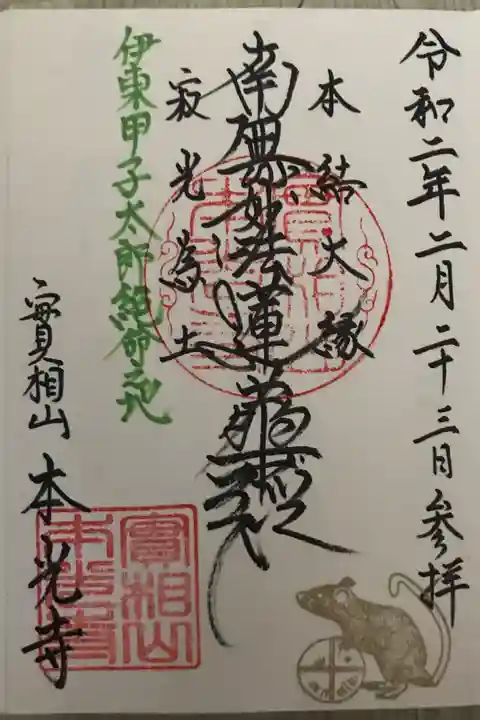 令和二年二月二十三日参拝
本結大縁
南無妙法蓮華経
寂光為土
伊東甲子太郎絶命之地
實相山
本光寺
實相山
本光寺